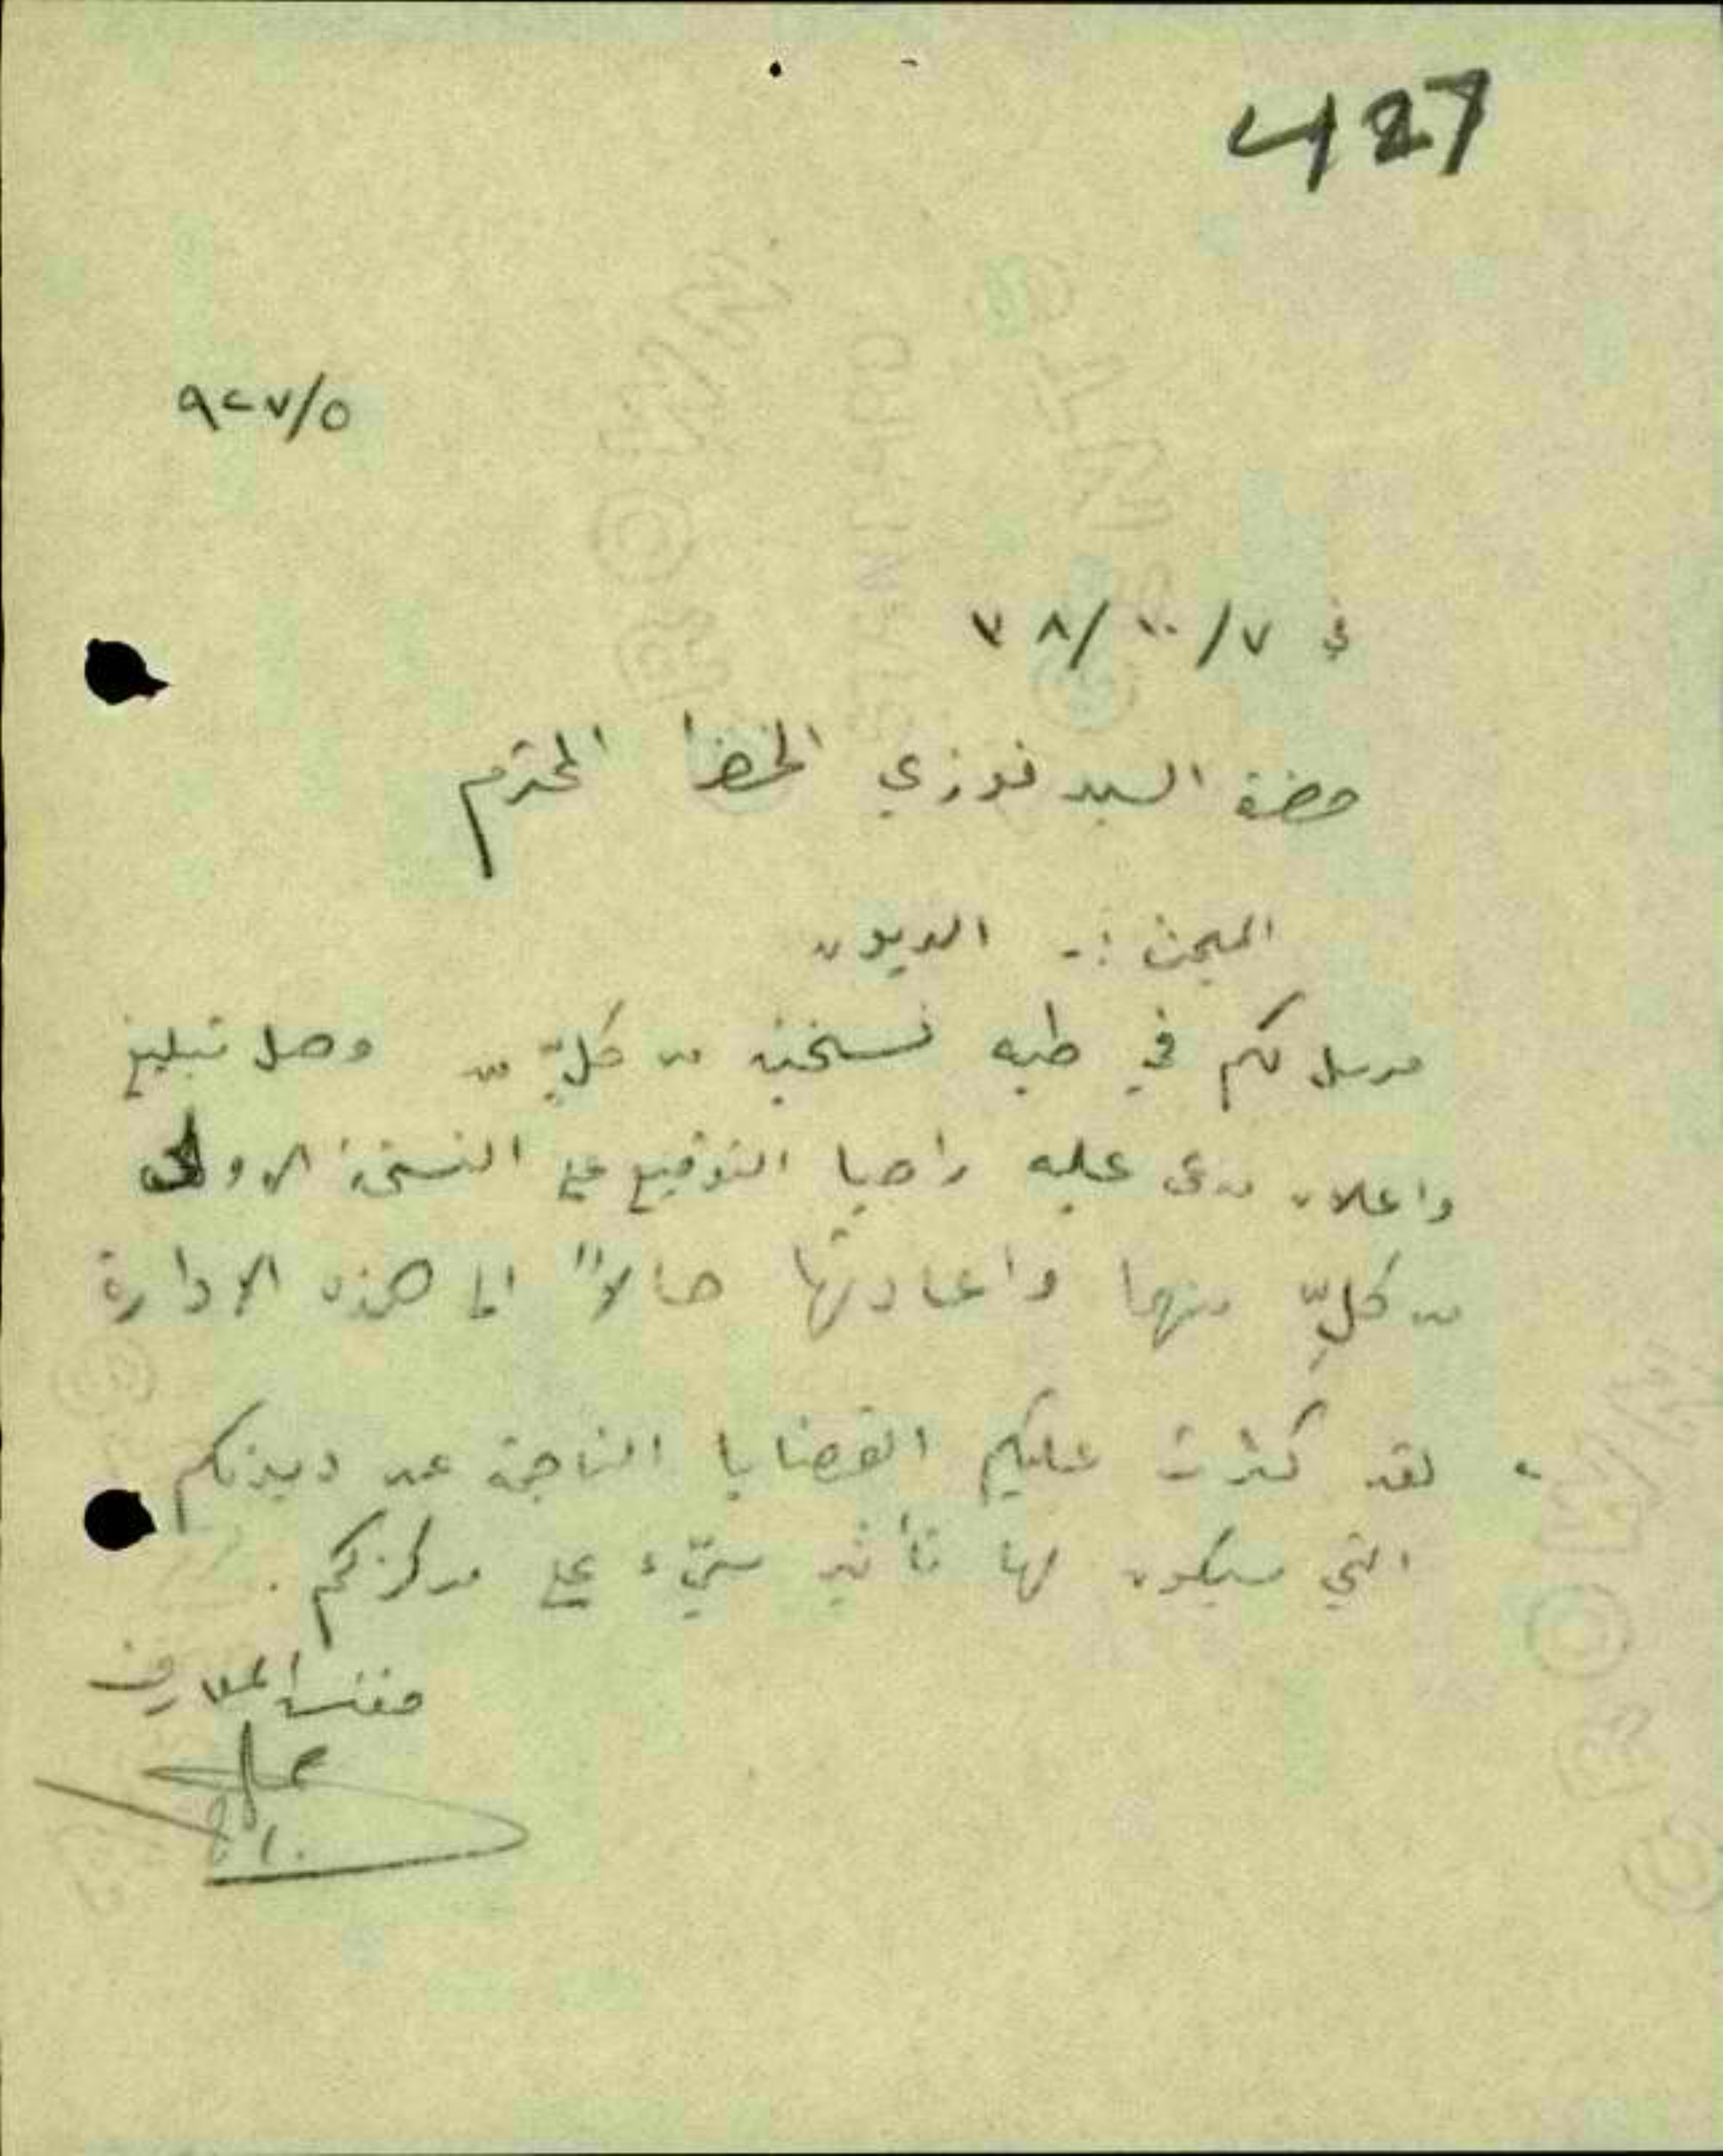 427
٩٢٧/٥
في ٧/١٠/٣٨
حضرة السيد فوزي الخضرا المحترم
المبحث :- الديون
مرسل لكم في طيه نسختين من كلٍّ من وصل تبليغ
واعلان مدعى عليه راجيا التوقيع على النسخة الاولى
من كلٍّ منهما واعادتها حالاً الى هذه الادارة
لقد كثرت عليكم القضايا الناجمة عن ديونكم
التي سيكون لها تأثير سيّء على مركزكم .
مفتش المعارف